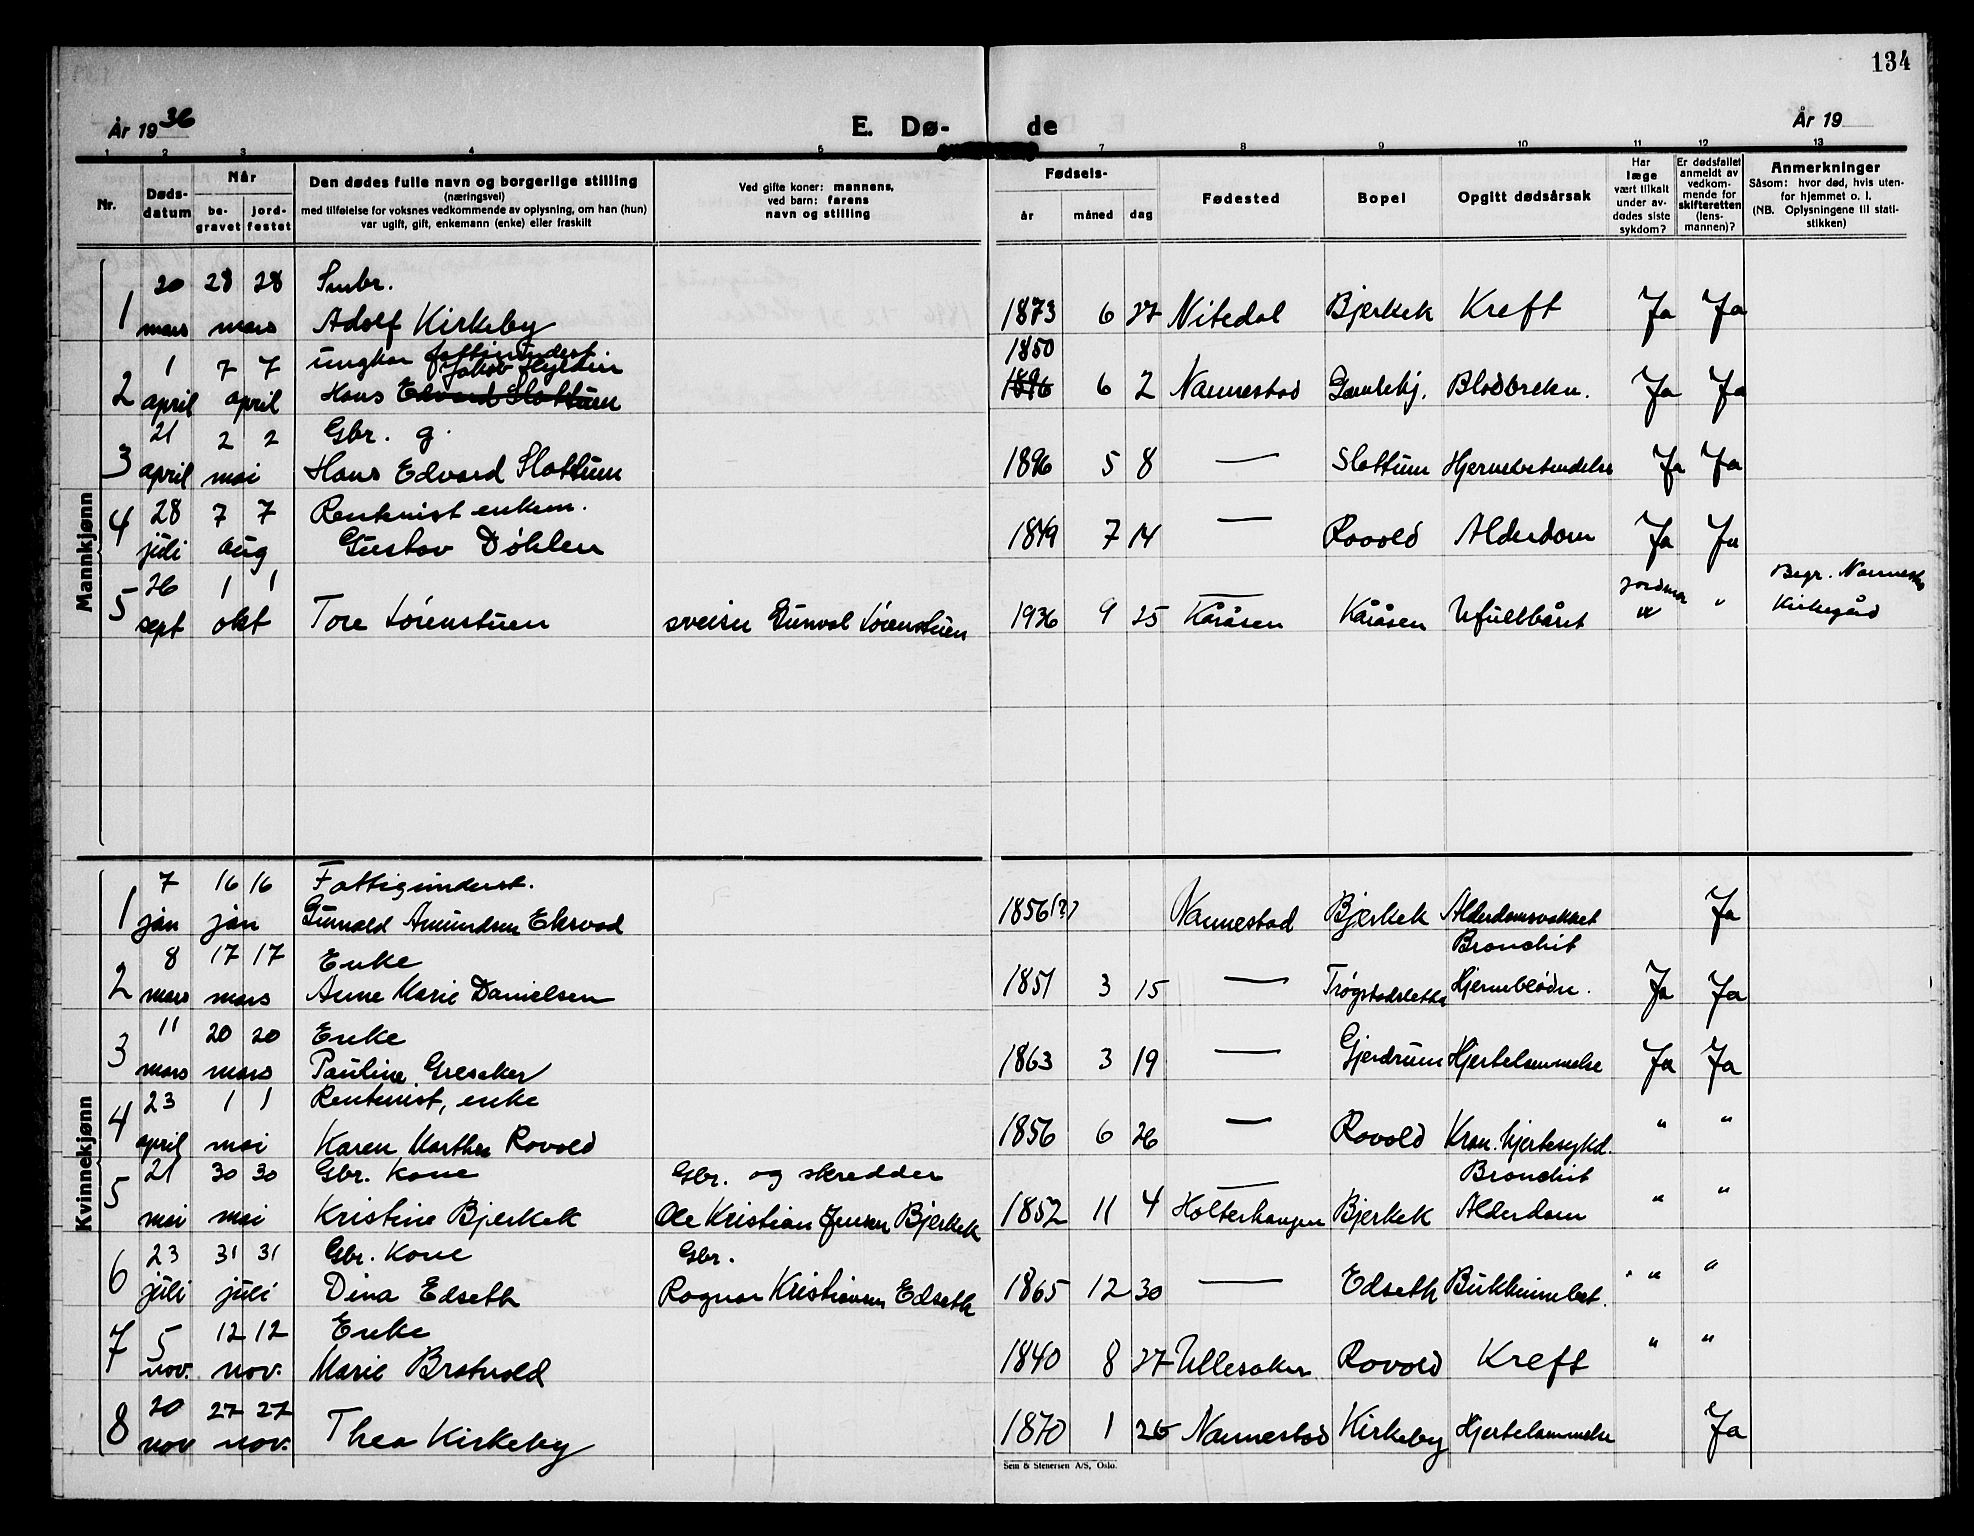 134
År 1936
E. Dø-
de
År 19
1 2 3 4 5 7 8 9 10 11 12 13
Nr.
Døds-
datum
Når
be-
gravet
jord-
festet
Den dødes fulle navn og borgerlige stilling
(næringsvei)
med tilføielse for voksnes vedkommende av oplysning, om han (hun)
var ugift, gift, enkemann (enke) eller fraskilt
Ved gifte koner: mannens,
ved barn: farens
navn og stilling
Fødsels-
år måned dag
Fødested
Bopel
Opgitt dødsårsak
Har
læge
vært tilkalt
under av-
dødes siste
sykdom?
Er dødsfallet
anmeldt av
vedkom-
mende for
skifteretten
(lens-
mannen)?
Anmerkninger
Såsom: hvor død, hvis uten-
for hjemmet o. l.
(NB. Oplysningene til stati-
stikken)
Mannkjønn
20 28 28 Smbr.
1 mars mars Adolf Kirkeby 1873 6 27 Nitedal Bjerkek Kreft Ja Ja
1 7 7 ungkar fattigunderst. 1850
Jakob
2 april april Hans Edvard Slattum 1896 6 2 Nannestad Gamlehj. Blodbrekn. Ja Ja
21 2 2 Gbr. g.
3 april mai Hans Edvard Slattum 1896 5 8 — Slattum Hjernebetendelse Ja Ja
28 7 7 Rentenist enkem.
4 juli aug Gustav Døhlen 1849 7 14 — Rovold Alderdom Ja Ja
26 1 1 — jordmor Begr. Nannestad
5 sept okt Tore Lørenstuen sveiser Gunval Lørenstuen 1936 9 25 Kåråsen Kåråsen Ufullbåret " " Kirkegård
Kvinnekjønn
7 16 16 Fattigunderst.
1 jan jan Gunald Amundsen Eksvad 1856(?) Nannestad Bjerkek Alderdomsvakket Ja
8 17 17 Enke Bronchit
2 mars mars Anne Marie Danielsen 1851 3 15 — Trøgstadsletta Hjerneblødn. Ja Ja
11 20 20 Enke
3 mars mars Pauline Gresaker 1863 3 19 — Gjerdrum Hjertelammelse Ja Ja
23 1 1 Rentenist, enke
4 april mai Karen Marthea Rovold 1856 6 26 — Rovold Kron. hjertesykd. " "
21 30 30 Gbr. kone Gbr. og skredder — Bronchit
5 mai mai Kristine Bjerkek Ole Kristian Jensen Bjerkek 1852 11 4 Holterhaugen Bjerkek Alderdom " "
23 31 31 Gbr. kone Gbr.
6 juli juli Dina Edseth Ragnar Kristiansen Edseth 1865 12 30 — Edseth Bukhinnebet. " "
5 12 12 Enke
7 nov. nov. Marie Bratvold 1840 8 27 Ullesaker Rovold Kreft " "
20 27 27
8 nov nov. Thea Kirkeby 1870 1 26 Nannestad Kirkeby Hjertelammelse Ja
Sem & Stenersen A/S, Oslo.